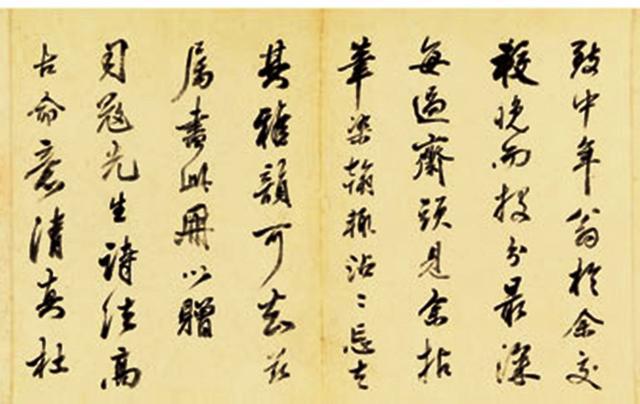 致中年翁於余交
較晚而投分最深
每過齋頭見余拈
筆染翰輒沾〻忘去
其雅韻可知茲
属書此冊以贈
司寇先生詩法高
古命意清真杜